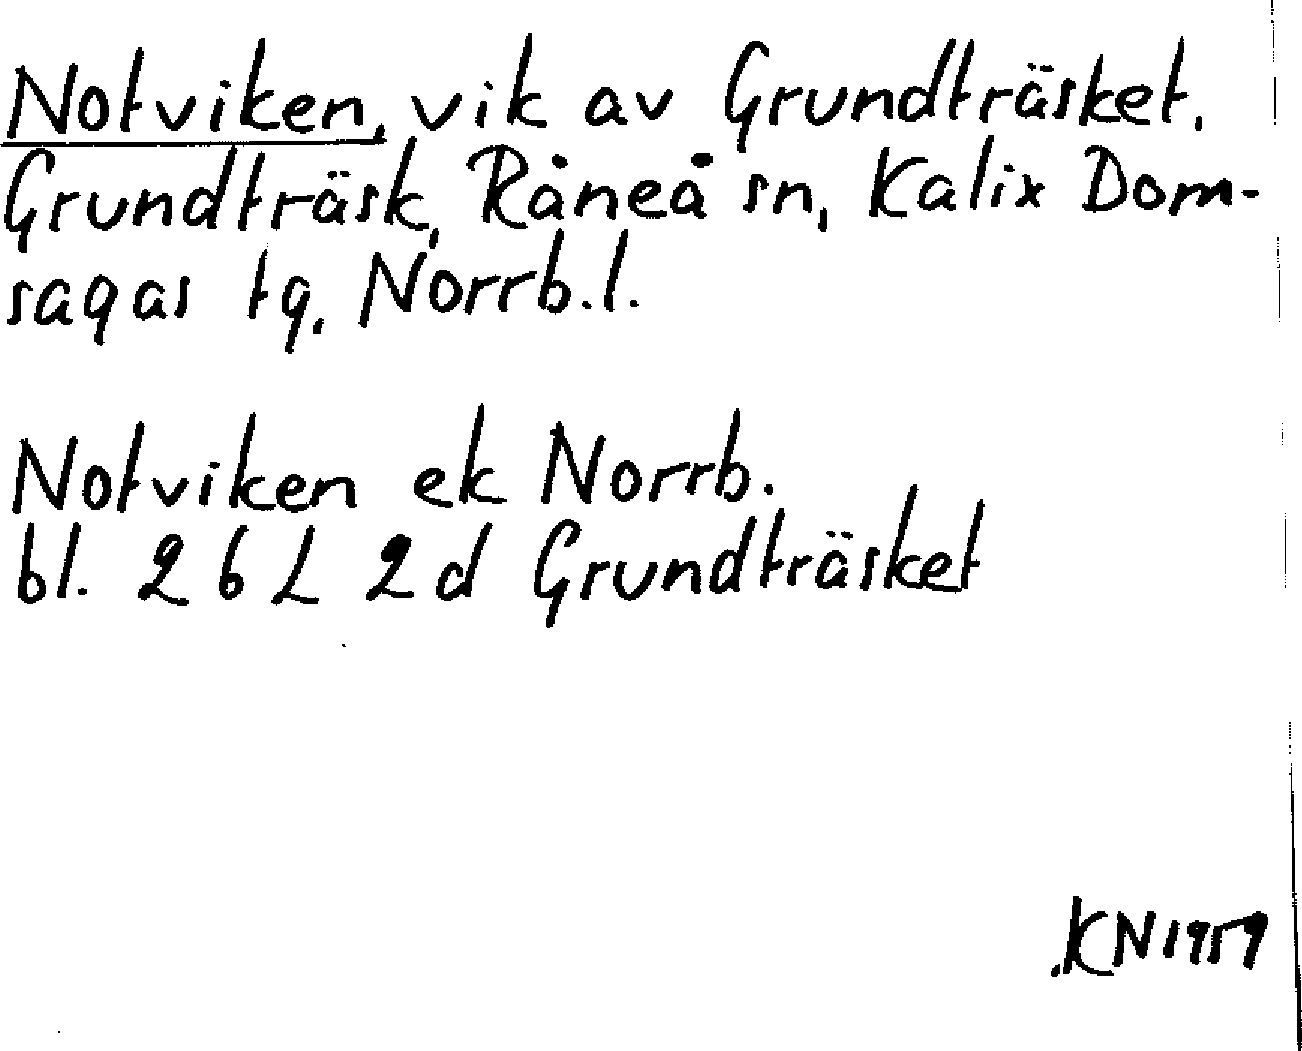 Notviken, vik av Grundträsket,
Grundträsk, Råneå sn, Kalix Dom-
sagas tg, Norrb.l.
Notviken ek Norrb.
bl. 26 L 2d Grundträsket
KN 1959